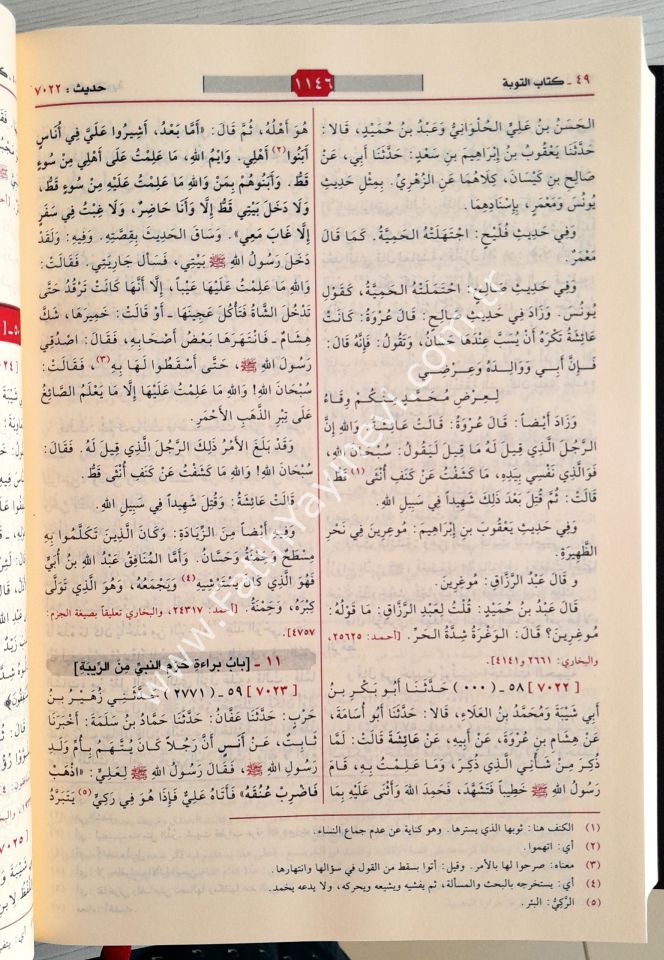 ٤٩ - كتاب التوبة
١١٤٦
حديث : ٧٠٢٢
الحَسَنُ بنُ عَلِيٍّ الحُلْوَانِيُّ وَعَبْدُ بنُ حُمَيْدٍ، قَالا:
حَدَّثَنَا يَعْقُوبُ بنُ إِبْرَاهِيمَ بنِ سَعْدٍ: حَدَّثَنَا أَبِي، عَنْ
صَالِحِ بنِ كَيْسَانَ، كِلَاهُمَا عَنِ الزُّهْرِيِّ. بِمِثْلِ حَدِيثِ
يُونُسَ وَمَعْمَرٍ، بِإِسْنَادِهِمَا.
وَفِي حَدِيثِ فُلَيْحٍ: اجْتَهَلَتْهُ الحَمِيَّةُ. كَمَا قَالَ
مَعْمَرٌ.
وَفِي حَدِيثِ صَالِحٍ: احْتَمَلَتْهُ الحَمِيَّةُ، كَقَوْلِ
يُونُسَ. وَزَادَ فِي حَدِيثِ صَالِحٍ: قَالَ عُرْوَةُ: كَانَتْ
عَائِشَةُ تَكْرَهُ أَنْ يُسَبَّ عِنْدَهَا حَسَّانُ، وَتَقُولُ: فَإِنَّهُ قَالَ:
فَإِنَّ أَبِي وَوَالِدَهُ وَعِرْضِي
لِعِرْضِ مُحَمَّدٍ مِنْكُمْ وِقَاءُ
وَزَادَ أَيْضاً: قَالَ عُرْوَةُ: قَالَتْ عَائِشَةُ: وَاللهِ إِنَّ
الرَّجُلَ الَّذِي قِيلَ لَهُ مَا قِيلَ لَيَقُولُ: سُبْحَانَ اللهِ،
فَوَالَّذِي نَفْسِي بِيَدِهِ، مَا كَشَفْتُ عَنْ كَنَفِ أُنْثَى (١) قَطُّ.
قَالَتْ: ثُمَّ قُتِلَ بَعْدَ ذَلِكَ شَهِيداً فِي سَبِيلِ اللهِ.
وَفِي حَدِيثِ يَعْقُوبَ بنِ إِبْرَاهِيمَ: مُوعِرِينَ فِي نَحْرِ
الظَّهِيرَةِ.
وَ قَالَ عَبْدُ الرَّزَّاقِ: مُوغِرِينَ.
قَالَ عَبْدُ بنُ حُمَيْدٍ: قُلْتُ لِعَبْدِ الرَّزَّاقِ: مَا قَوْلُهُ:
مُوغِرِينَ؟ قَالَ: الوَغْرَةُ شِدَّةُ الحَرِّ. [أحمد: ٢٥٦٢٥،
والبخاري: ٢٦٦١ و٤١٤١].
[٧٠٢٢] ٥٨ - (٠٠٠) حَدَّثَنَا أَبُو بَكْرِ بنُ
أَبِي شَيْبَةَ وَمُحَمَّدُ بنُ العَلَاءِ، قَالا: حَدَّثَنَا أَبُو أُسَامَةَ،
عَنْ هِشَامِ بنِ عُرْوَةَ، عَنْ أَبِيهِ، عَنْ عَائِشَةَ قَالَتْ: لَمَّا
ذُكِرَ مِنْ شَأْنِي الَّذِي ذُكِرَ، وَمَا عَلِمْتُ بِهِ، قَامَ
رَسُولُ اللهِ ﷺ خَطِيباً فَتَشَهَّدَ، فَحَمِدَ اللهَ وَأَثْنَى عَلَيْهِ بِمَا
هُوَ أَهْلُهُ، ثُمَّ قَالَ: «أَمَّا بَعْدُ، أَشِيرُوا عَلَيَّ فِي أُنَاسٍ
أَبَنُوا (٢) أَهْلِي. وَايْمُ اللهِ، مَا عَلِمْتُ عَلَى أَهْلِي مِنْ سُوءٍ
قَطُّ. وَأَبَنُوهُمْ بِمَنْ وَاللهِ مَا عَلِمْتُ عَلَيْهِ مِنْ سُوءٍ قَطُّ،
وَلَا دَخَلَ بَيْتِي قَطُّ إِلَّا وَأَنَا حَاضِرٌ، وَلَا غِبْتُ فِي سَفَرٍ
إِلَّا غَابَ مَعِي». وَسَاقَ الحَدِيثَ بِقِصَّتِهِ. وَفِيهِ: وَلَقَدْ
دَخَلَ رَسُولُ اللهِ ﷺ بَيْتِي، فَسَأَلَ جَارِيَتِي. فَقَالَتْ:
وَاللهِ مَا عَلِمْتُ عَلَيْهَا عَيْباً، إِلَّا أَنَّهَا كَانَتْ تَرْقُدُ حَتَّى
تَدْخُلَ الشَّاةُ فَتَأْكُلَ عَجِينَهَا - أَوْ قَالَتْ: خَمِيرَهَا، شَكَّ
هِشَامٌ - فَانْتَهَرَهَا بَعْضُ أَصْحَابِهِ، فَقَالَ: اصْدُقِي
رَسُولَ اللهِ ﷺ، حَتَّى أَسْقَطُوا لَهَا بِهِ (٣)، فَقَالَتْ:
سُبْحَانَ اللهِ! وَاللهِ مَا عَلِمْتُ عَلَيْهَا إِلَّا مَا يَعْلَمُ الصَّائِغُ
عَلَى تِبْرِ الذَّهَبِ الأَحْمَرِ.
وَقَدْ بَلَغَ الأَمْرُ ذَلِكَ الرَّجُلَ الَّذِي قِيلَ لَهُ. فَقَالَ:
سُبْحَانَ اللهِ! وَاللهِ مَا كَشَفْتُ عَنْ كَنَفِ أُنْثَى قَطُّ.
قَالَتْ عَائِشَةُ: وَقُتِلَ شَهِيداً فِي سَبِيلِ اللهِ.
وَفِيهِ أَيْضاً مِنَ الزِّيَادَةِ: وَكَانَ الَّذِينَ تَكَلَّمُوا بِهِ
مِسْطَحٌ وَحَمْنَةُ وَحَسَّانُ. وَأَمَّا المُنَافِقُ عَبْدُ اللهِ بنُ أُبَيٍّ
فَهُوَ الَّذِي كَانَ يَسْتَوْشِيهِ (٤) وَيَجْمَعُهُ، وَهُوَ الَّذِي تَوَلَّى
كِبْرَهُ، وَحَمْنَةُ. [أحمد: ٢٤٣١٧، والبخاري تعليقاً بصيغة الجزم:
٤٧٥٧].
١١ - [بابُ براءةِ حَرَمِ النبيِّ مِنَ الرِّيبَةِ]
[٧٠٢٣] ٥٩ - (٢٧٧١) حَدَّثَنِي زُهَيْرُ بنُ
حَرْبٍ: حَدَّثَنَا عَفَّانُ: حَدَّثَنَا حَمَّادُ بنُ سَلَمَةَ: أَخْبَرَنَا
ثَابِتٌ، عَنْ أَنَسٍ أَنَّ رَجُلاً كَانَ يُتَّهَمُ بِأُمِّ وَلَدِ
رَسُولِ اللهِ ﷺ، فَقَالَ رَسُولُ اللهِ ﷺ لِعَلِيٍّ: «اذْهَبْ
فَاضْرِبْ عُنُقَهُ» فَأَتَاهُ عَلِيٌّ فَإِذَا هُوَ فِي رَكِيٍّ (٥) يَتَبَرَّدُ
(١) الكنف هنا: ثوبها الذي يسترها. وهو كناية عن عدم جماع النساء.
(٢) أي: اتهموا.
(٣) معناه: صرحوا لها بالأمر. وقيل: أتوا بسقط من القول في سؤالها وانتهارها.
(٤) أي: يستخرجه بالبحث والمسألة، ثم يفشيه ويشيعه ويحركه، ولا يدعه يخمد.
(٥) الرَّكِيُّ: البئر.